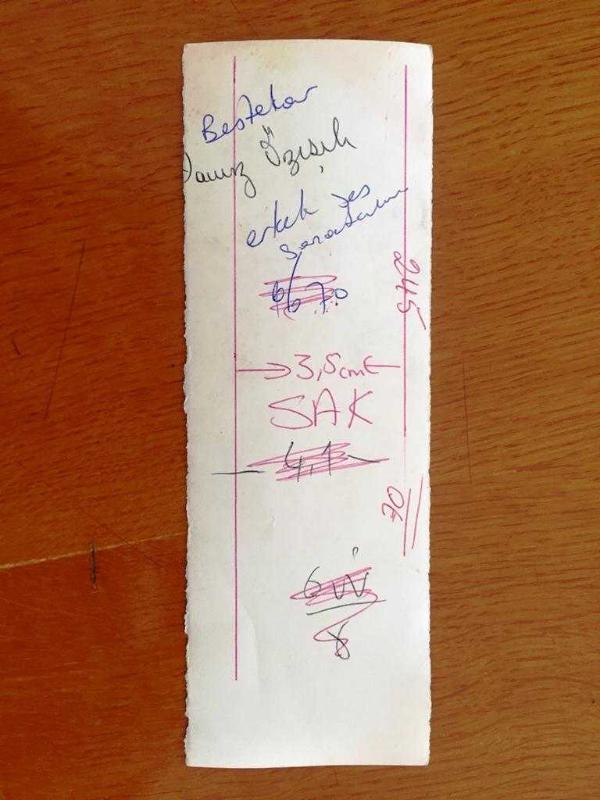 Bestekar
Yavuz Özışık
erkek ses
Sanatçısı
245
3,5 cm
SAK
4,1
70
8